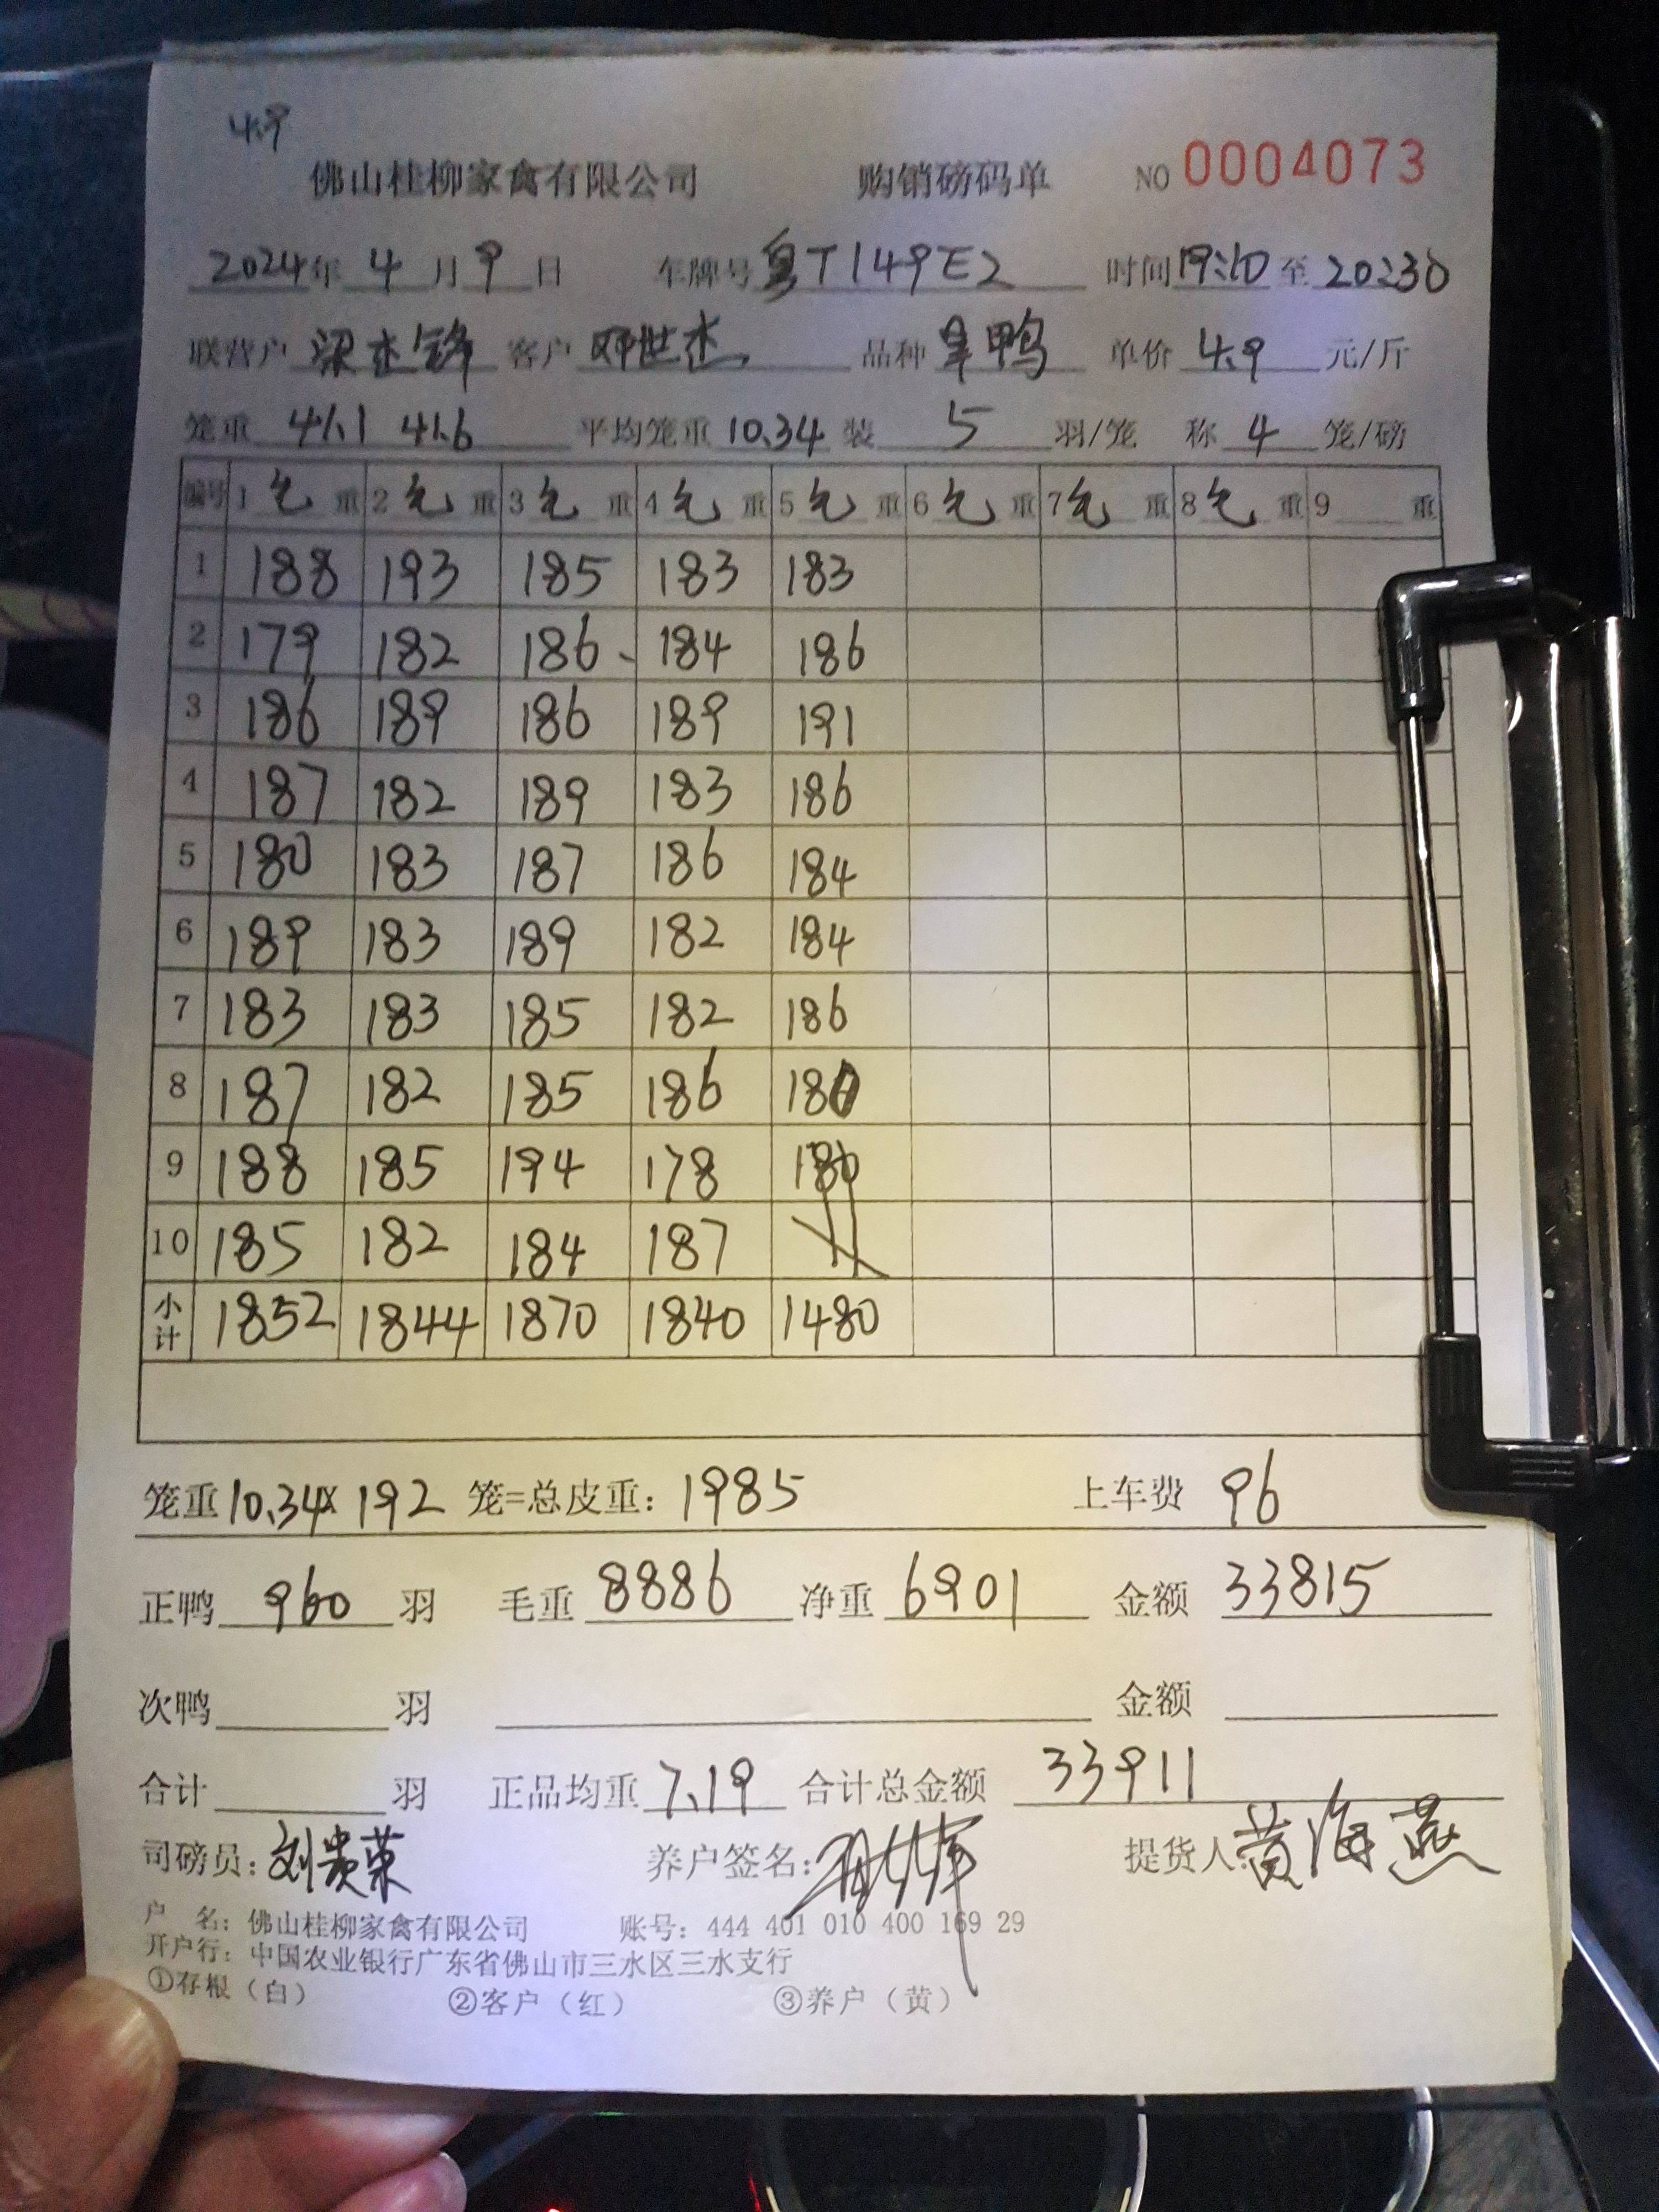 4.9
佛山桂柳家禽有限公司 购销磅码单 NO 0004073
2024年 4 月 9 日 车牌号 粤T149E2 时间 19:10 至 20:30
联营户 梁志锋 客户 邓世杰 品种 单价 4.9 元/斤
笼重 41.1 41.6 平均笼重 10.34 装 5 羽/笼 称 4 笼/磅
编号 1 毛 重 2 毛 重 3 毛 重 4 毛 重 5 毛 重 6 毛 重 7 毛 重 8 毛 重 9 重
1 188 193 185 183 183
2 179 182 186 184 186
3 186 189 186 189 191
4 187 182 189 183 186
5 180 183 187 186 184
6 189 183 189 182 184
7 183 183 185 182 186
8 187 182 185 186 180
9 188 185 194 178
10 185 182 184 187
小计 1852 1844 1870 1840 1480
笼重 10.34 × 192 笼=总皮重: 1985 上车费 96
正鸭 960 羽 毛重 8886 净重 6901 金额 33815
次鸭 羽 金额
合计 羽 正品均重 7.19 合计总金额 33911
司磅员: 刘贵荣 养户签名: 提货人: 黄海燕
户 名: 佛山桂柳家禽有限公司 账号: 444 401 010 400 169 29
开户行: 中国农业银行广东省佛山市三水区三水支行
①存根（白） ②客户（红） ③养户（黄）